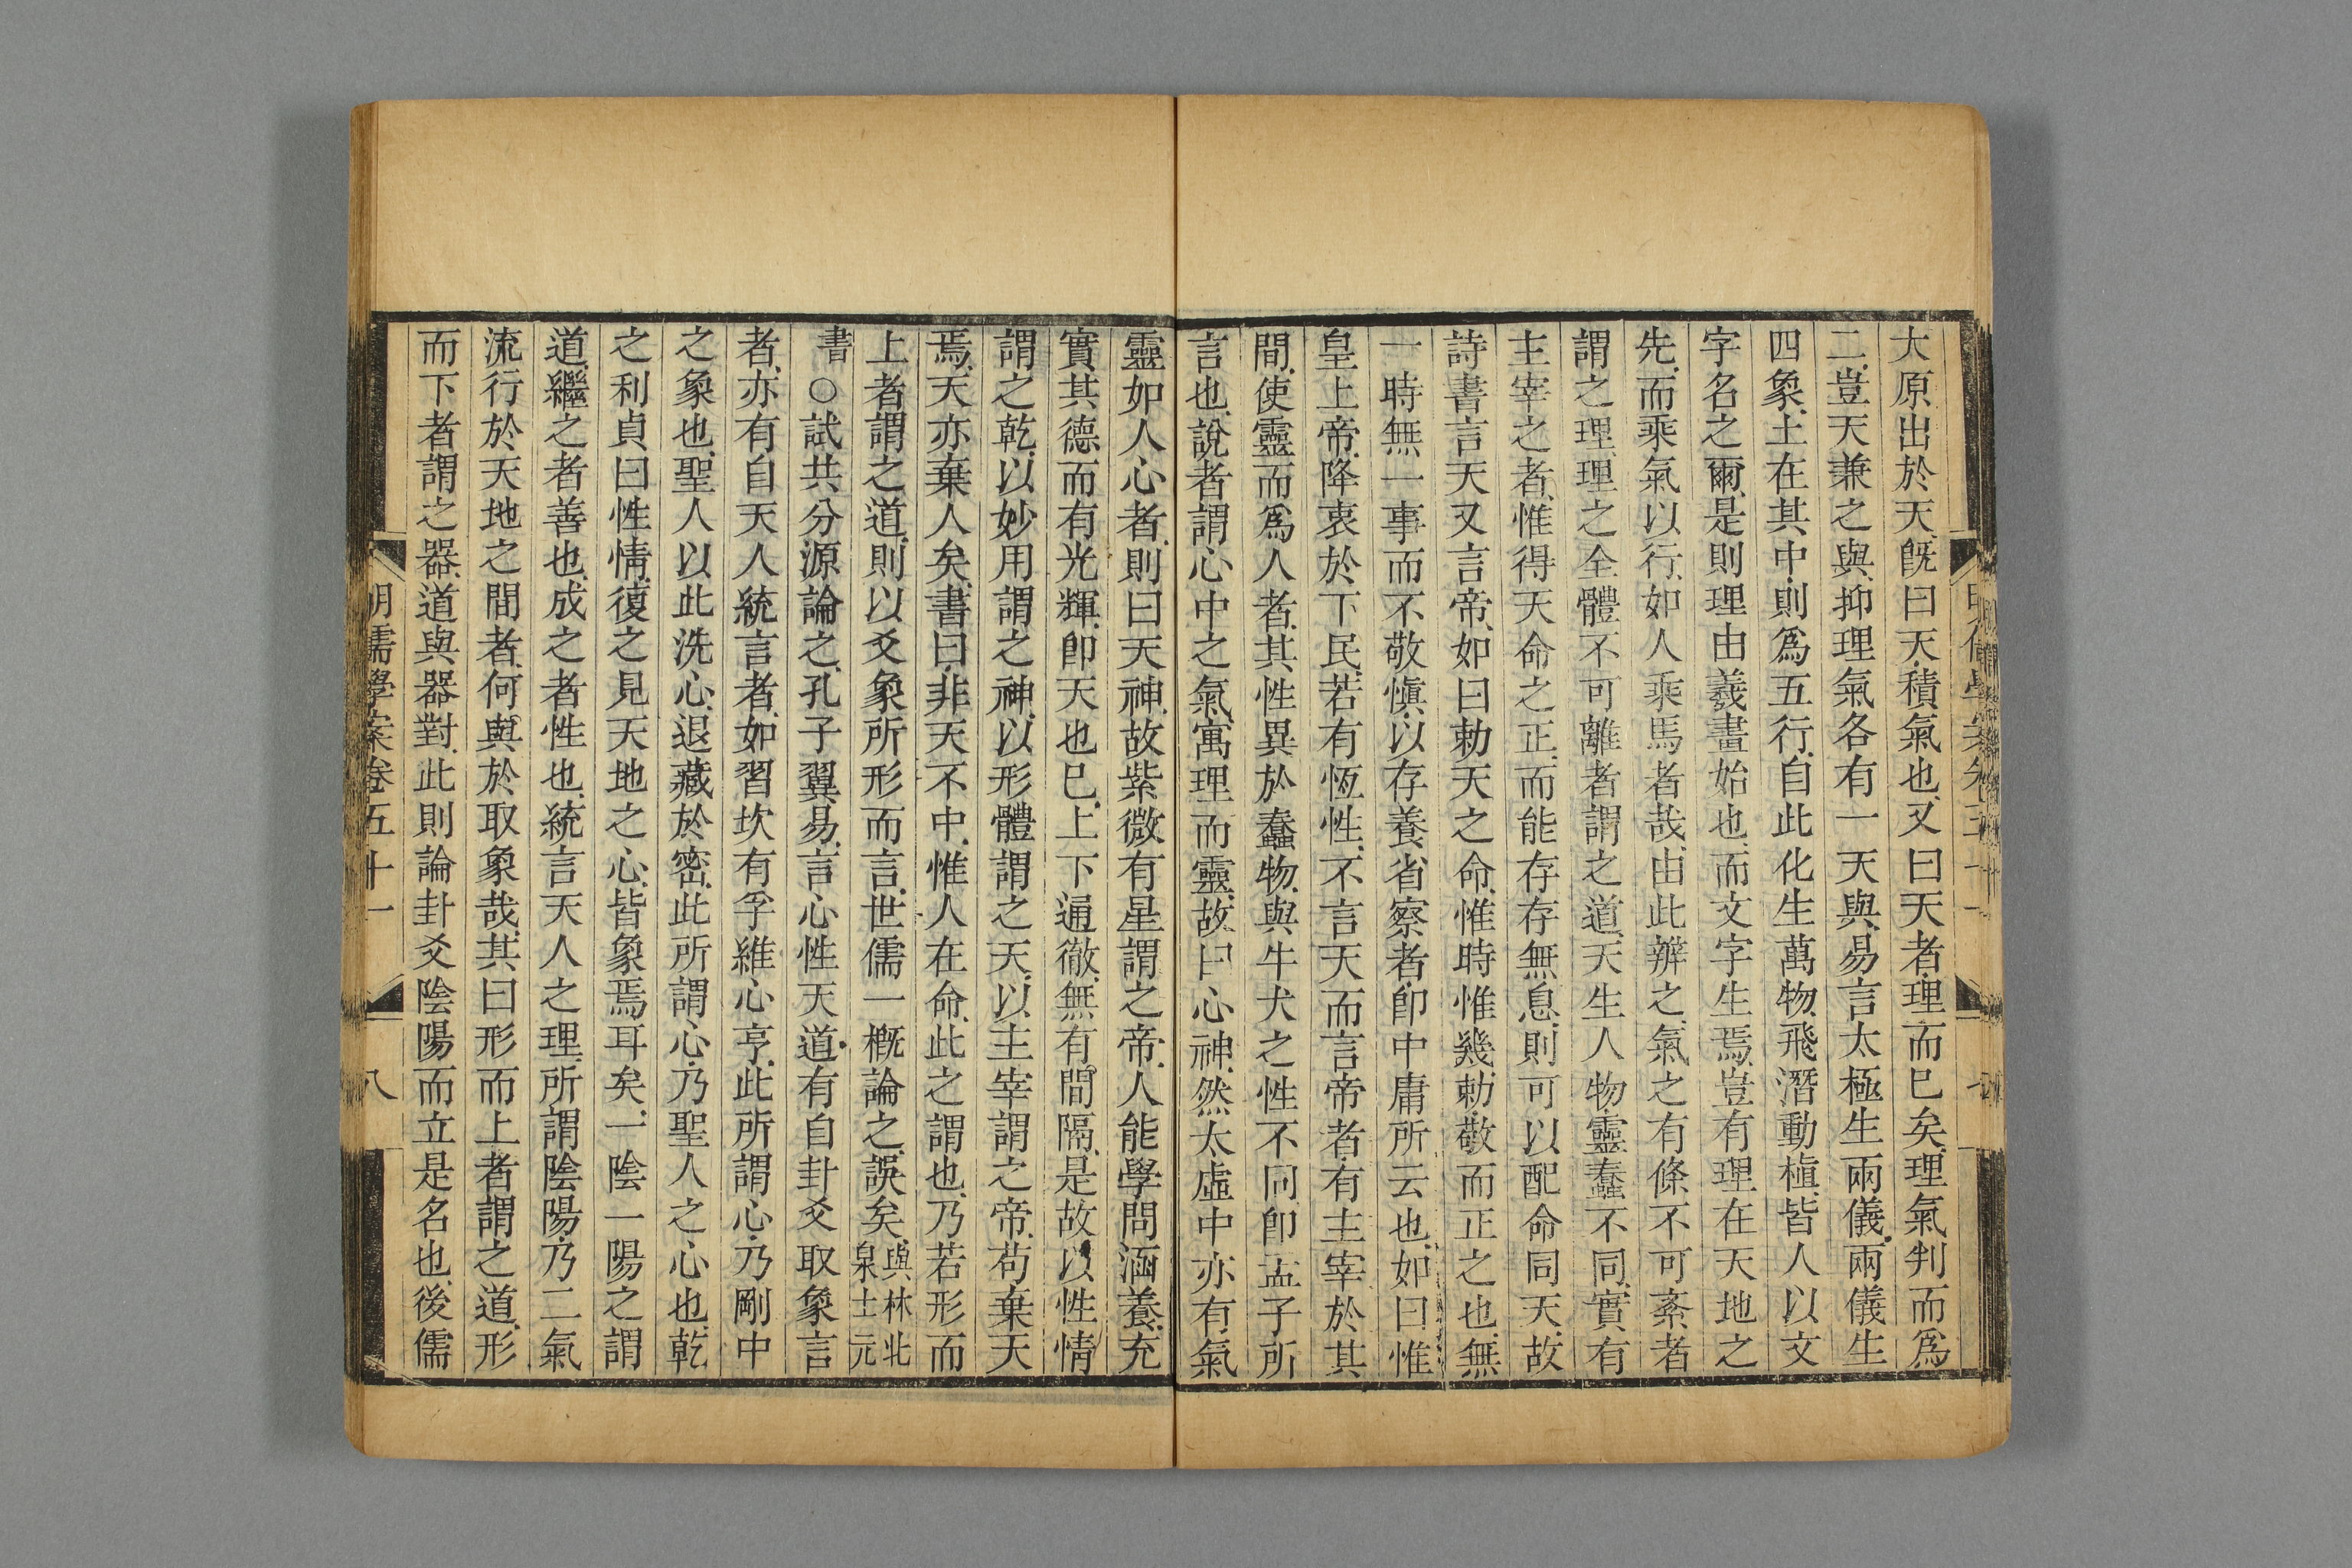 大原出於天、旣曰天積氣也、又曰天者、理而已矣、理氣判而爲
二、豈天兼之與、抑理氣各有一天與、易言太極生兩儀、兩儀生
四象、土在其中、則爲五行、自此化生萬物、飛潛動植、皆人以文
字名之爾、是則理由羲畫始也、而文字生焉、豈有理在天地之
先、而乘氣以行、如人乘馬者哉、由此辨之、氣之有條不可紊者
謂之理、理之全體不可離者謂之道、天生人物、靈蠢不同、實有
主宰之者、惟得天命之正、而能存存無息、則可以配命同天、故
詩書言天又言帝、如曰勅天之命、惟時惟幾、勅、敬而正之也、無
一時無一事而不敬愼、以存養省察者、卽中庸所云也、如曰惟
皇上帝、降衷於下民、若有恆性、不言天而言帝者、有主宰於其
間、使靈而爲人者、其性異於蠢物、與牛犬之性不同、卽孟子所
言也、說者謂心中之氣、寓理而靈、故曰心神、然太虛中亦有氣
靈如人心者、則曰天神、故紫微有星謂之帝、人能學問涵養、充
實其德、而有光輝、卽天也已、上下通徹、無有間隔、是故以性情
謂之乾、以妙用謂之神、以形體謂之天、以主宰謂之帝、苟棄天
焉、天亦棄人矣、書曰、非天不中、惟人在命、此之謂也、乃若形而
上者謂之道、則以爻象所形而言、世儒一槪論之、誤矣、與林北泉士元
書 ○試共分源論之、孔子翼易、言心性天道、有自卦爻取象言
者、亦有自天人統言者、如習坎有孚維心亨、此所謂心、乃剛中
之象也、聖人以此洗心、退藏於密、此所謂心、乃聖人之心也、乾
之利貞曰性情、復之見天地之心、皆象焉耳矣、一陰一陽之謂
道、繼之者善也、成之者性也、統言天人之理、所謂陰陽、乃二氣
流行於天地之間者、何與於取象哉、其曰形而上者謂之道、形
而下者謂之器、道與器對、此則論卦爻陰陽而立是名也、後儒
明儒學案卷五十一 八